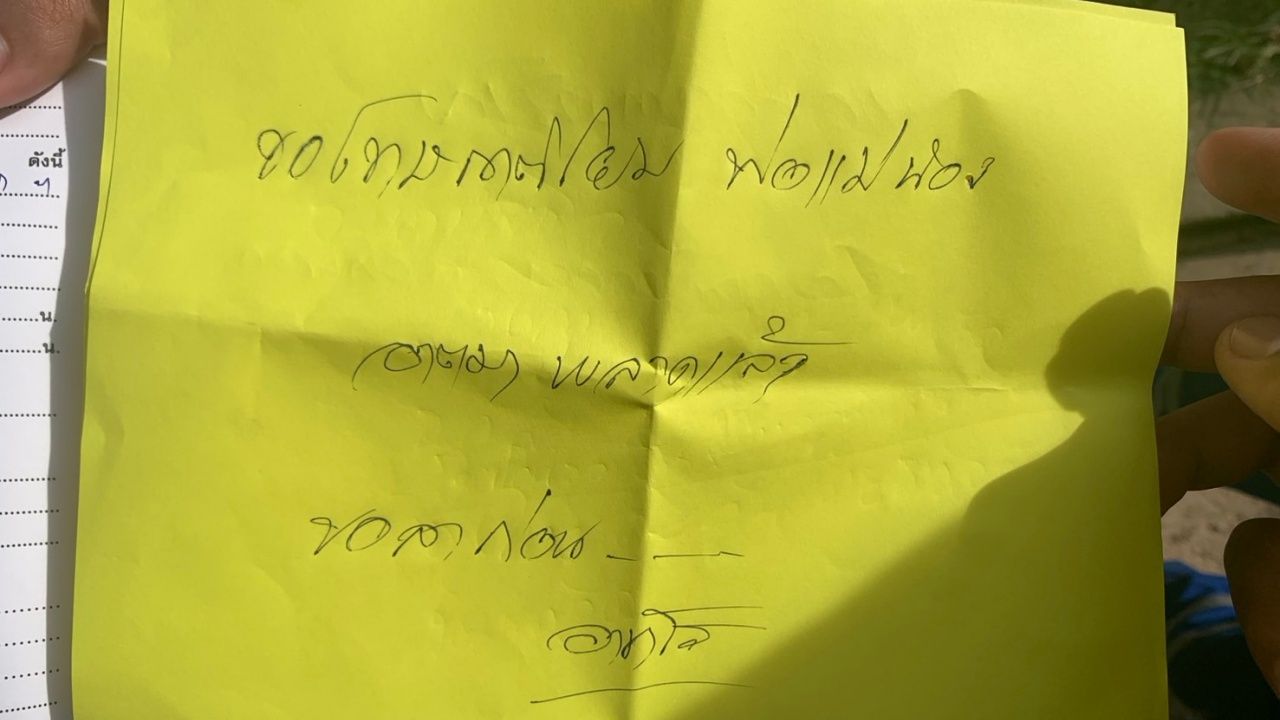 ขอโทษญาติโยม พ่อแม่น้อง
อาตมา พลาดแล้ว
ขอลาก่อน
ดังนี้
น.
น.